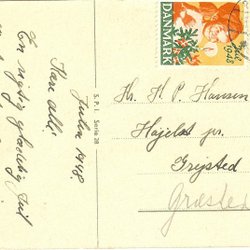 Julen 1948.
Kære alle!
En rigtig glædelig Jul
S. P. J. Serie 28
DANMARK
Jul
1948
Hr. H. P. Hansen
Højelst pr.
Græsted